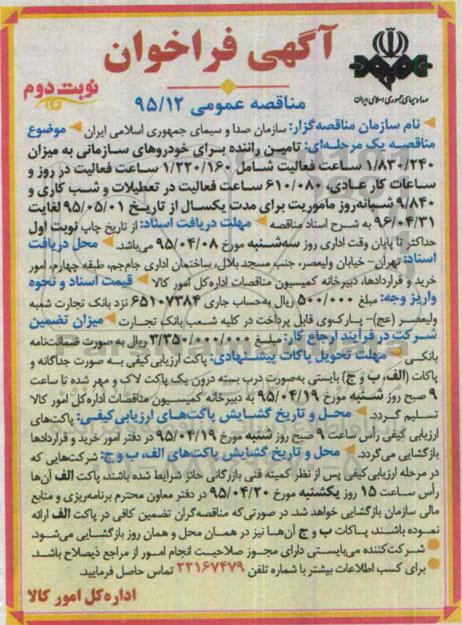 آگهی فراخوان
نوبت دوم
صدا و سیمای جمهوری اسلامی ایران
مناقصه عمومی ۹۵/۱۲
نام سازمان مناقصه‌گزار: سازمان صدا و سیمای جمهوری اسلامی ایران موضوع
مناقصه یک مرحله‌ای: تامین راننده برای خودروهای سازمانی به میزان
۱/۸۳۰/۲۴۰ ساعت فعالیت شامل ۱/۲۲۰/۱۶۰ ساعت فعالیت در روز و
ساعات کار عادی، ۶۱۰/۰۸۰ ساعت فعالیت در تعطیلات و شب کاری و
۹/۸۴۰ شبانه‌روز ماموریت برای مدت یکسال از تاریخ ۹۵/۰۵/۰۱ لغایت
۹۶/۰۴/۳۱ به شرح اسناد مناقصه مهلت دریافت اسناد: از تاریخ چاپ نوبت اول
حداکثر تا پایان وقت اداری روز سه‌شنبه مورخ ۹۵/۰۴/۰۸ می‌باشد. محل دریافت
اسناد: تهران- خیابان ولیعصر، جنب مسجد بلال، ساختمان اداری جام‌جم، طبقه چهارم، امور
خرید و قراردادها، دبیرخانه کمیسیون مناقصات اداره‌کل امور کالا قیمت اسناد و نحوه
واریز وجه: مبلغ ۵۰۰/۰۰۰ ریال به‌حساب جاری ۶۵۱۰۷۳۸۴ نزد بانک تجارت شعبه
ولیعصر (عج)- پارک‌وی قابل پرداخت در کلیه شعب بانک تجارت میزان تضمین
شرکت در فرآیند ارجاع کار: مبلغ ۳/۳۵۰/۰۰۰/۰۰۰ ریال به صورت ضمانت‌نامه
بانکی مهلت تحویل پاکات پیشنهادی: پاکت ارزیابی کیفی به صورت جداگانه و
پاکات (الف، ب و ج) بایستی به‌صورت درب بسته درون یک پاکت لاک و مهر شده تا ساعت
۹ صبح روز شنبه مورخ ۹۵/۰۴/۱۹ به دبیرخانه کمیسیون مناقصات اداره‌کل امور کالا
تسلیم گردد. محل و تاریخ گشایش پاکت‌های ارزیابی‌کیفی: پاکت‌های
ارزیابی کیفی رأس ساعت ۹ صبح روز شنبه مورخ ۹۵/۰۴/۱۹ در دفتر امور خرید و قراردادها
بازگشایی می‌گردد. محل و تاریخ گشایش پاکت‌های الف، ب و ج: شرکت‌هایی که
در مرحله ارزیابی‌کیفی پس از نظر کمیته فنی بازرگانی حائز شرایط شده باشند، پاکت الف آن‌ها
رأس ساعت ۱۵ روز یکشنبه مورخ ۹۵/۰۴/۲۰ در دفتر معاون محترم برنامه‌ریزی و منابع
مالی سازمان بازگشایی خواهد شد. در صورتی‌که مناقصه‌گران تضمین کافی در پاکت الف ارائه
نموده باشند، پاکات ب و ج آن‌ها نیز در همان محل و همان روز بازگشایی می‌شود.
شرکت‌کننده می‌بایستی دارای مجوز صلاحیت انجام امور از مراجع ذیصلاح باشد.
برای کسب اطلاعات بیشتر با شماره تلفن ۲۲۱۶۷۴۷۹ تماس حاصل فرمایید.
اداره‌کل امور کالا